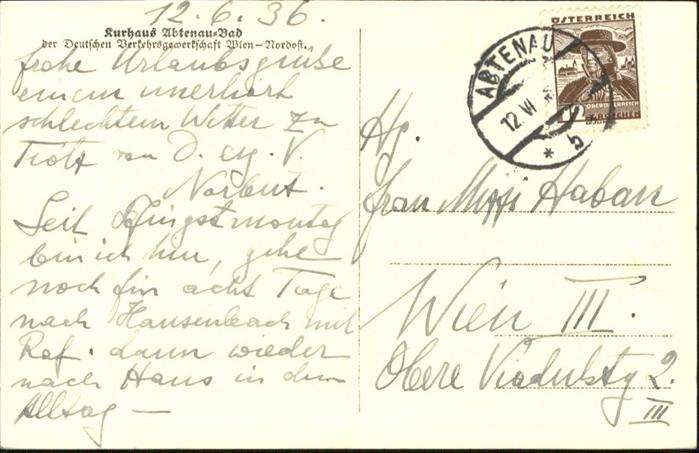 12.6.36.
Kurhaus Abtenau-Bad
der Deutschen Verkehrsgewerkschaft Wien–Nordost.
frohe Urlaubsgrüße
einem unerhört
schlechtem Wetter zu
Trotz von D.
Norbert.
Seit Pfingstmontag
bin ich hier, gehe
noch für acht Tage
nach Hausenbach mit
Ref. dann wieder
nach Haus in den
Alltag —
ABTENAU
12 VI
* b
ÖSTERREICH
OBERÖSTERREICH
12 GROSCHEN
frau Haban
Wien III.
Obere Viaduktg 2.
III